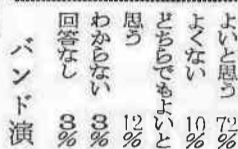 よいと思う 72%
よくない 10%
どちらでもよいと
思う 12%
わからない 3%
回答なし 3%
バンド演